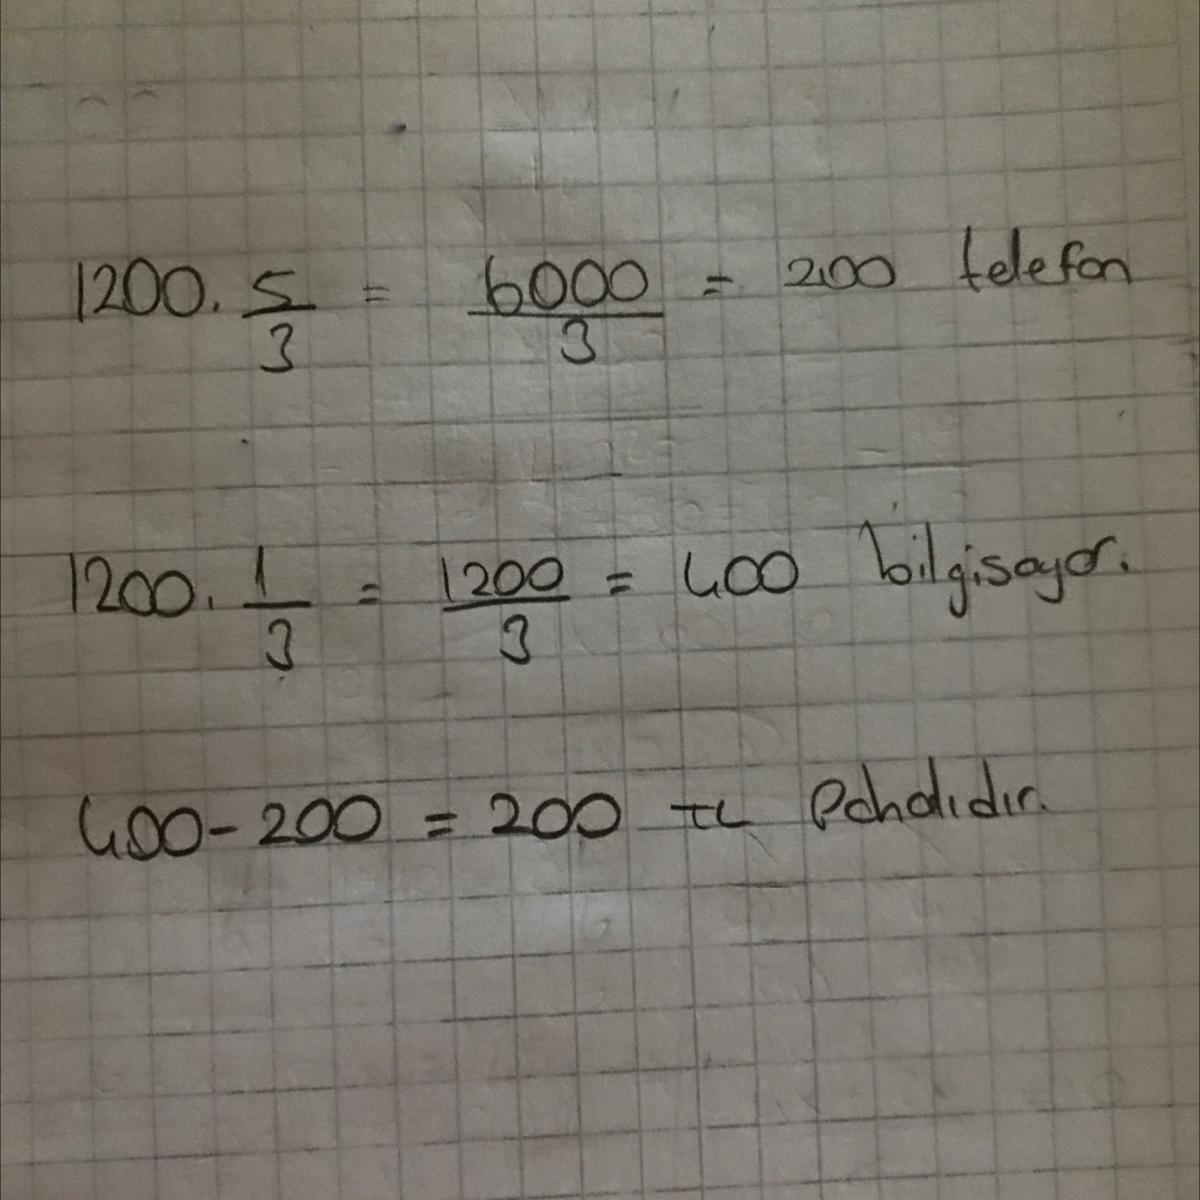 1200. 5/3 = 6000/3 = 200 telefon
1200. 1/3 = 1200/3 = 400 bilgisayar.
400-200 = 200 TL pahalıdır.